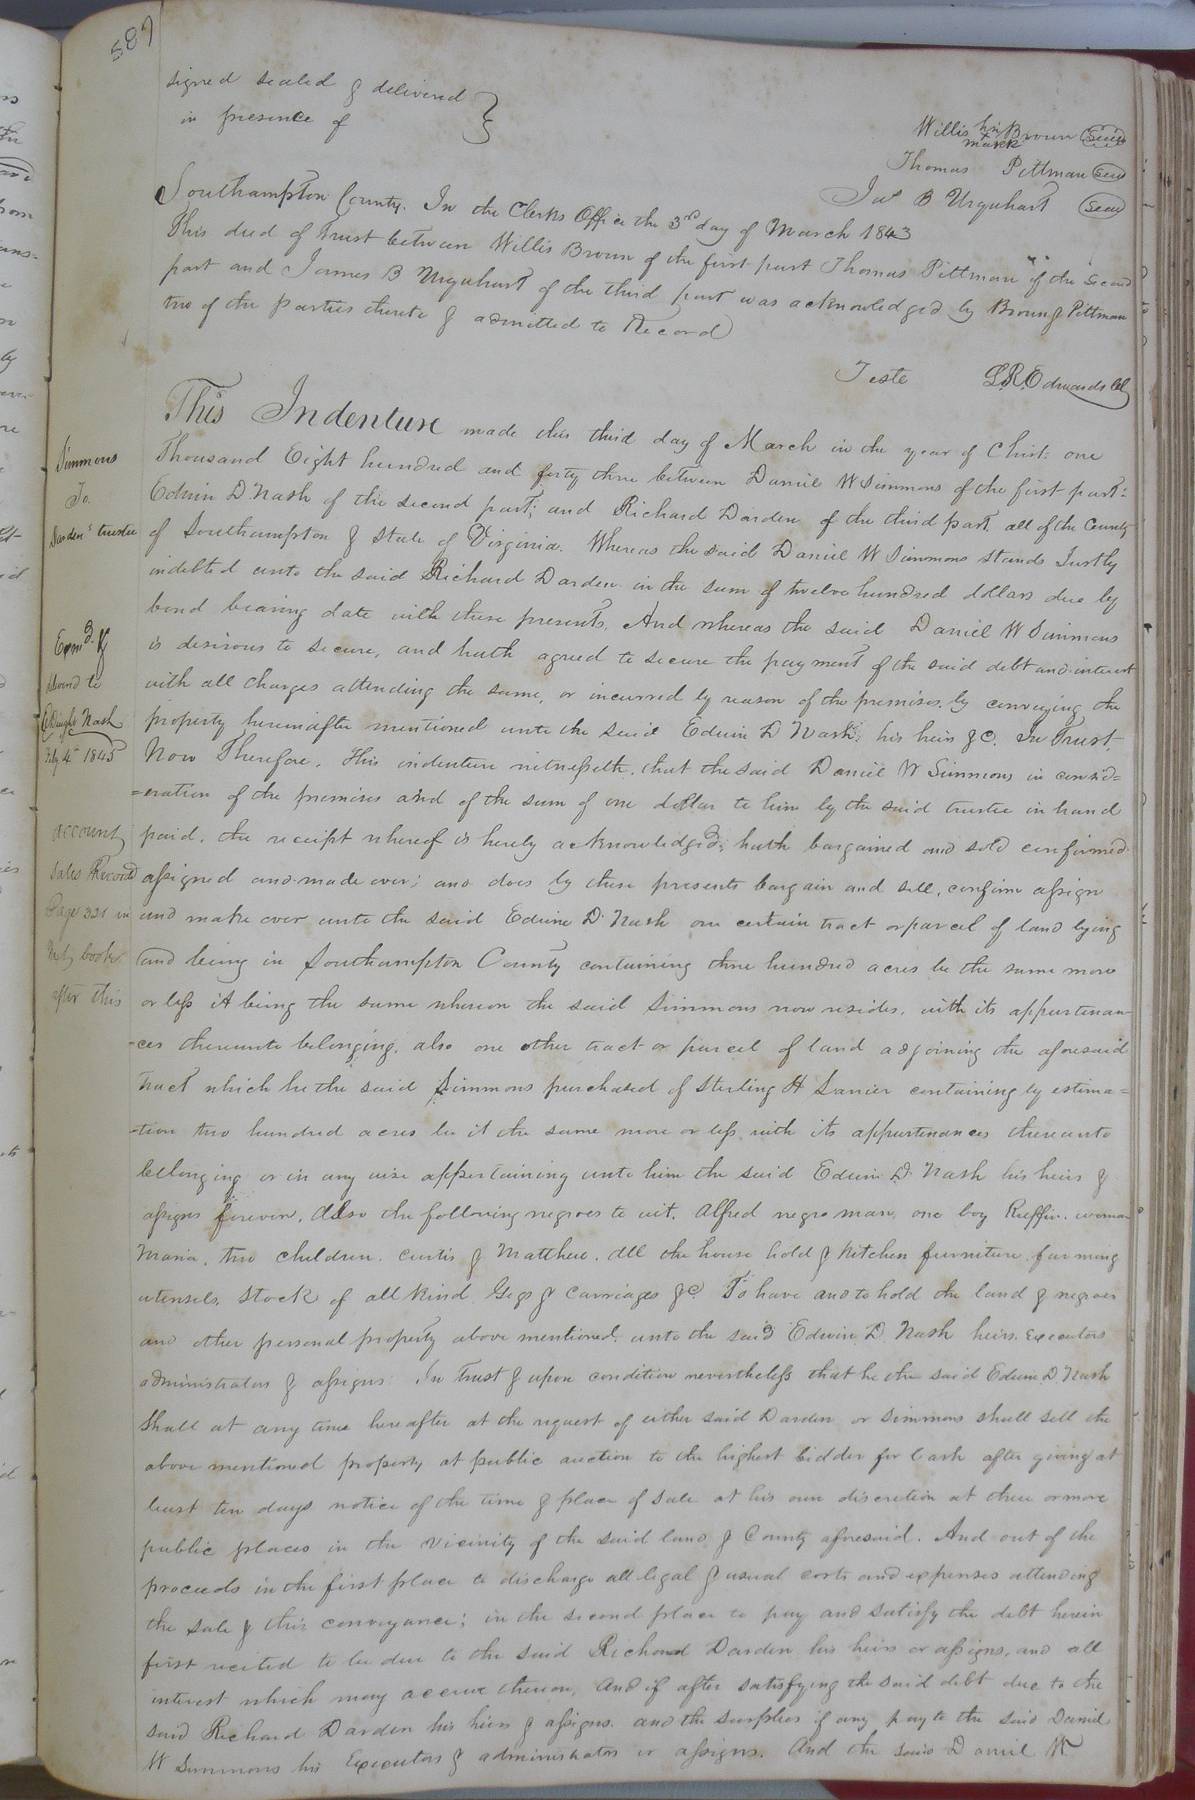 587
signed sealed & delivered
in presence of
Willis his Brown Seal
mark
Thomas Pittman Seal
Jas B Urquhart Seal
Southampton County. In the Clerks Office the 3rd day of March 1843
This deed of Trust between Willis Brown of the first part Thomas Pittman of the second
part and James B Urquhart of the third part was acknowledged by Brown & Pittman
two of the parties thereto & admitted to Record
Teste L.R. Edwards Cl
Simmons
To
Darden's trustee
Exmd. &
delivd to
E Dwight Nash
July 4th 1845
account
Sales Record
Page 321 in
next book
after this
This Indenture made this third day of March in the year of Christ: one
Thousand Eight hundred and forty three between Daniel W Simmons of the first part:
Edwin D Nash of the second part; and Richard Darden of the third part all of the County
of Southampton & State of Virginia. Whereas the said Daniel W Simmons stands Justly
indebted unto the said Richard Darden in the sum of twelve hundred dollars due by
bond bearing date with these presents. And whereas the said Daniel W Simmons
is desirous to secure, and hath agreed to secure the payment of the said debt and interest
with all charges attending the same, or incurred by reason of the premises, by conveying the
property hereinafter mentioned unto the said Edwin D Nash; his heirs &c. In Trust.
Now Therefore. This indenture witnesseth, that the said Daniel W Simmons in consid=
=eration of the premises and of the sum of one dollar to him by the said trustee in hand
paid, the receipt whereof is hereby acknowledged; hath bargained and sold confirmed
assigned and made over; and does by these presents bargain and sell, confirm assign
and make over unto the said Edwin D Nash one certain tract or parcel of land lying
and being in Southampton County containing three hundred acres be the same more
or less it being the same whereon the said Simmons now resides, with its appurtenan-
-ces thereunto belonging. also one other tract or parcel of land adjoining the aforesaid
tract which he the said Simmons purchased of Sterling H Lanier containing by estima=
-tion two hundred acres be it the same more or less with its appurtenances thereunto
belonging or in any wise appertaining unto him the said Edwin D. Nash his heirs &
assigns forever. Also the following negroes to wit. Alfred negro man, one boy Ruffin. woman
Maria, two children. Curtis & Matthew. All the house hold & kitchen furniture, farming
utensils, Stock of all kind Gigs & Carriages &c. To have and to hold the land & negroes
and other personal property above mentioned, unto the said Edwin D. Nash heirs. Executors
administrators & assigns. In Trust & upon condition nevertheless that he the said Edwin D Nash
shall at any time hereafter at the request of either said Darden or Simmons shall sell the
above mentioned property at public auction to the highest bidder for Cash after giving at
least ten days notice of the time & place of Sale at his own discretion at three or more
public places in the vicinity of the said land & County aforesaid. And out of the
proceeds in the first place to discharge all legal & usual costs and expenses attending
the sale & this conveyance; in the second place to pay and satisfy the debt herein
first recited to be due to the said Richard Darden his heirs or assigns, and all
interest which may accrue thereon. And if after satisfying the said debt due to the
said Richard Darden his heirs & assigns. and the surplus if any pay to the said Daniel
W Simmons his Executors & administrators or assigns. And the said Daniel W